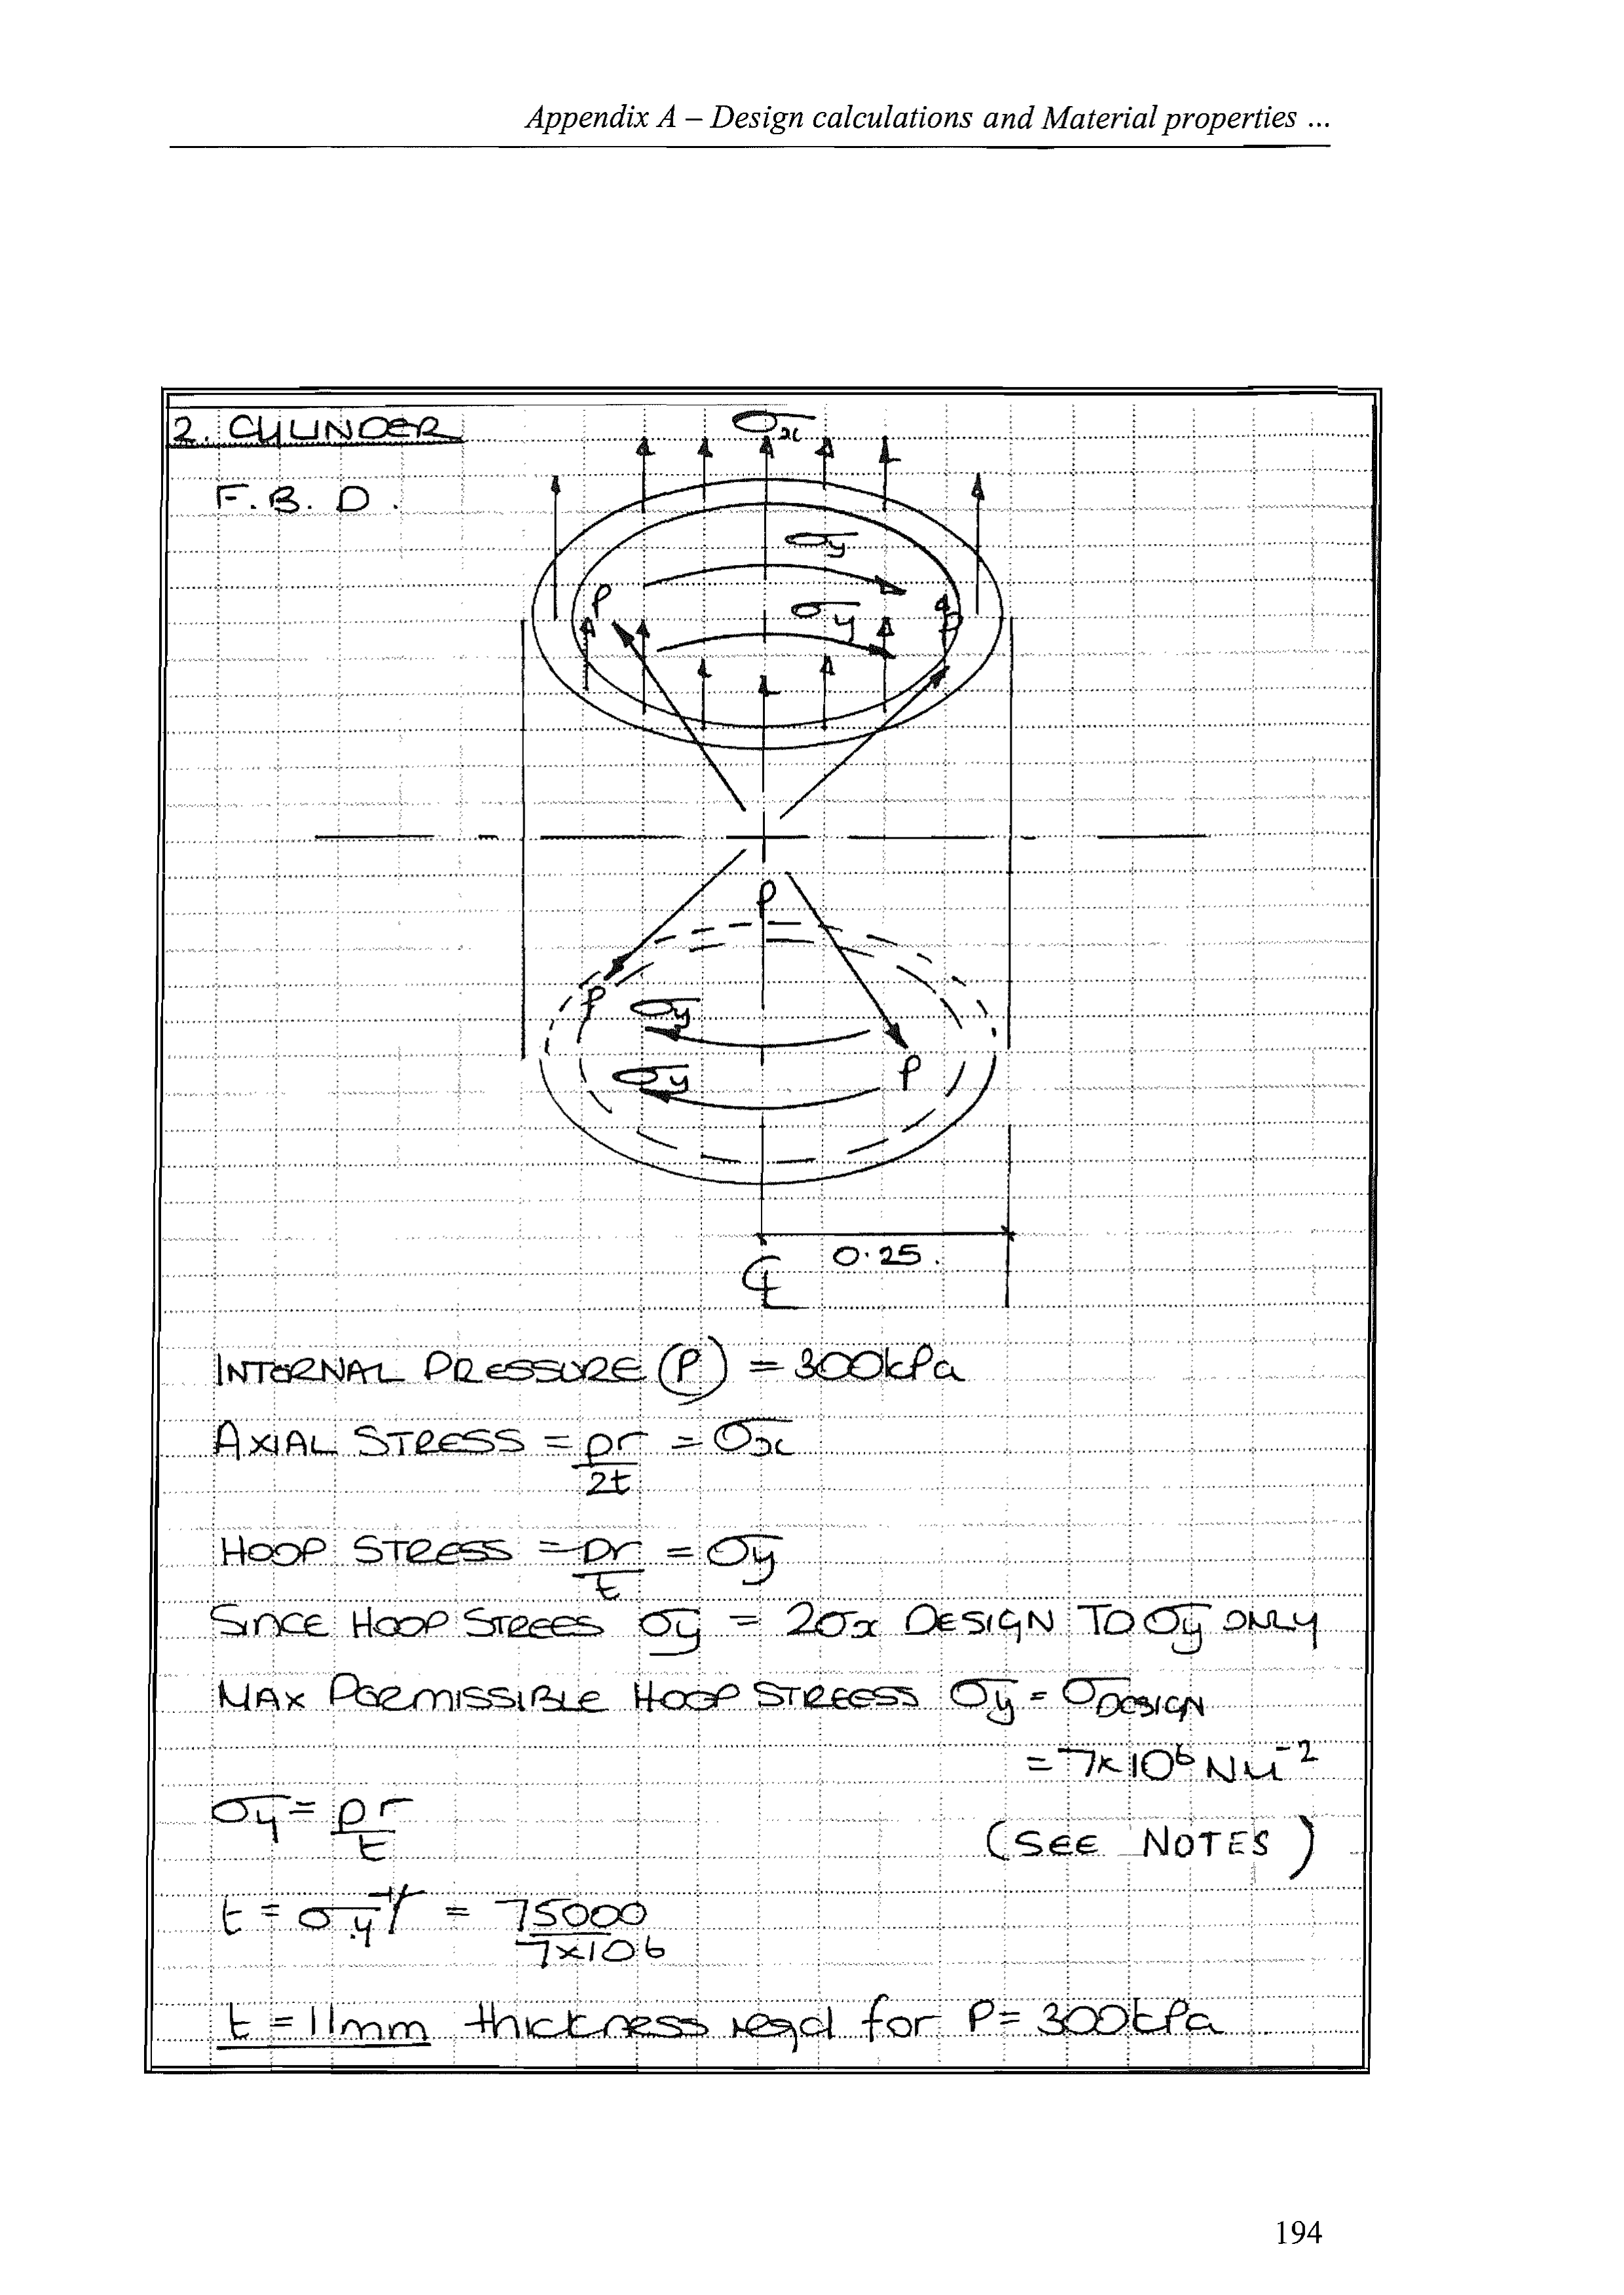 Appendix A – Design calculations and Material properties ...
2. CYLINDER
σx
F.B.D.
σy
P
σy
P
P
P
σy
σy
P
0.25.
℄
INTERNAL PRESSURE (P) = 300kPa
AXIAL STRESS = pr/2t = σx
HOOP STRESS = pr/t = σy
SINCE HOOP STREES σy = 2σx DESIGN TO σy ONLY
MAX PERMISSIBLE HOOP STREESS σy = σDESIGN
= 7x10⁶ NM⁻²
σy = pr/t
(SEE NOTES)
t = σy = 75000/7x10⁶
t = 11mm thickness reqd for P = 300kPa
194